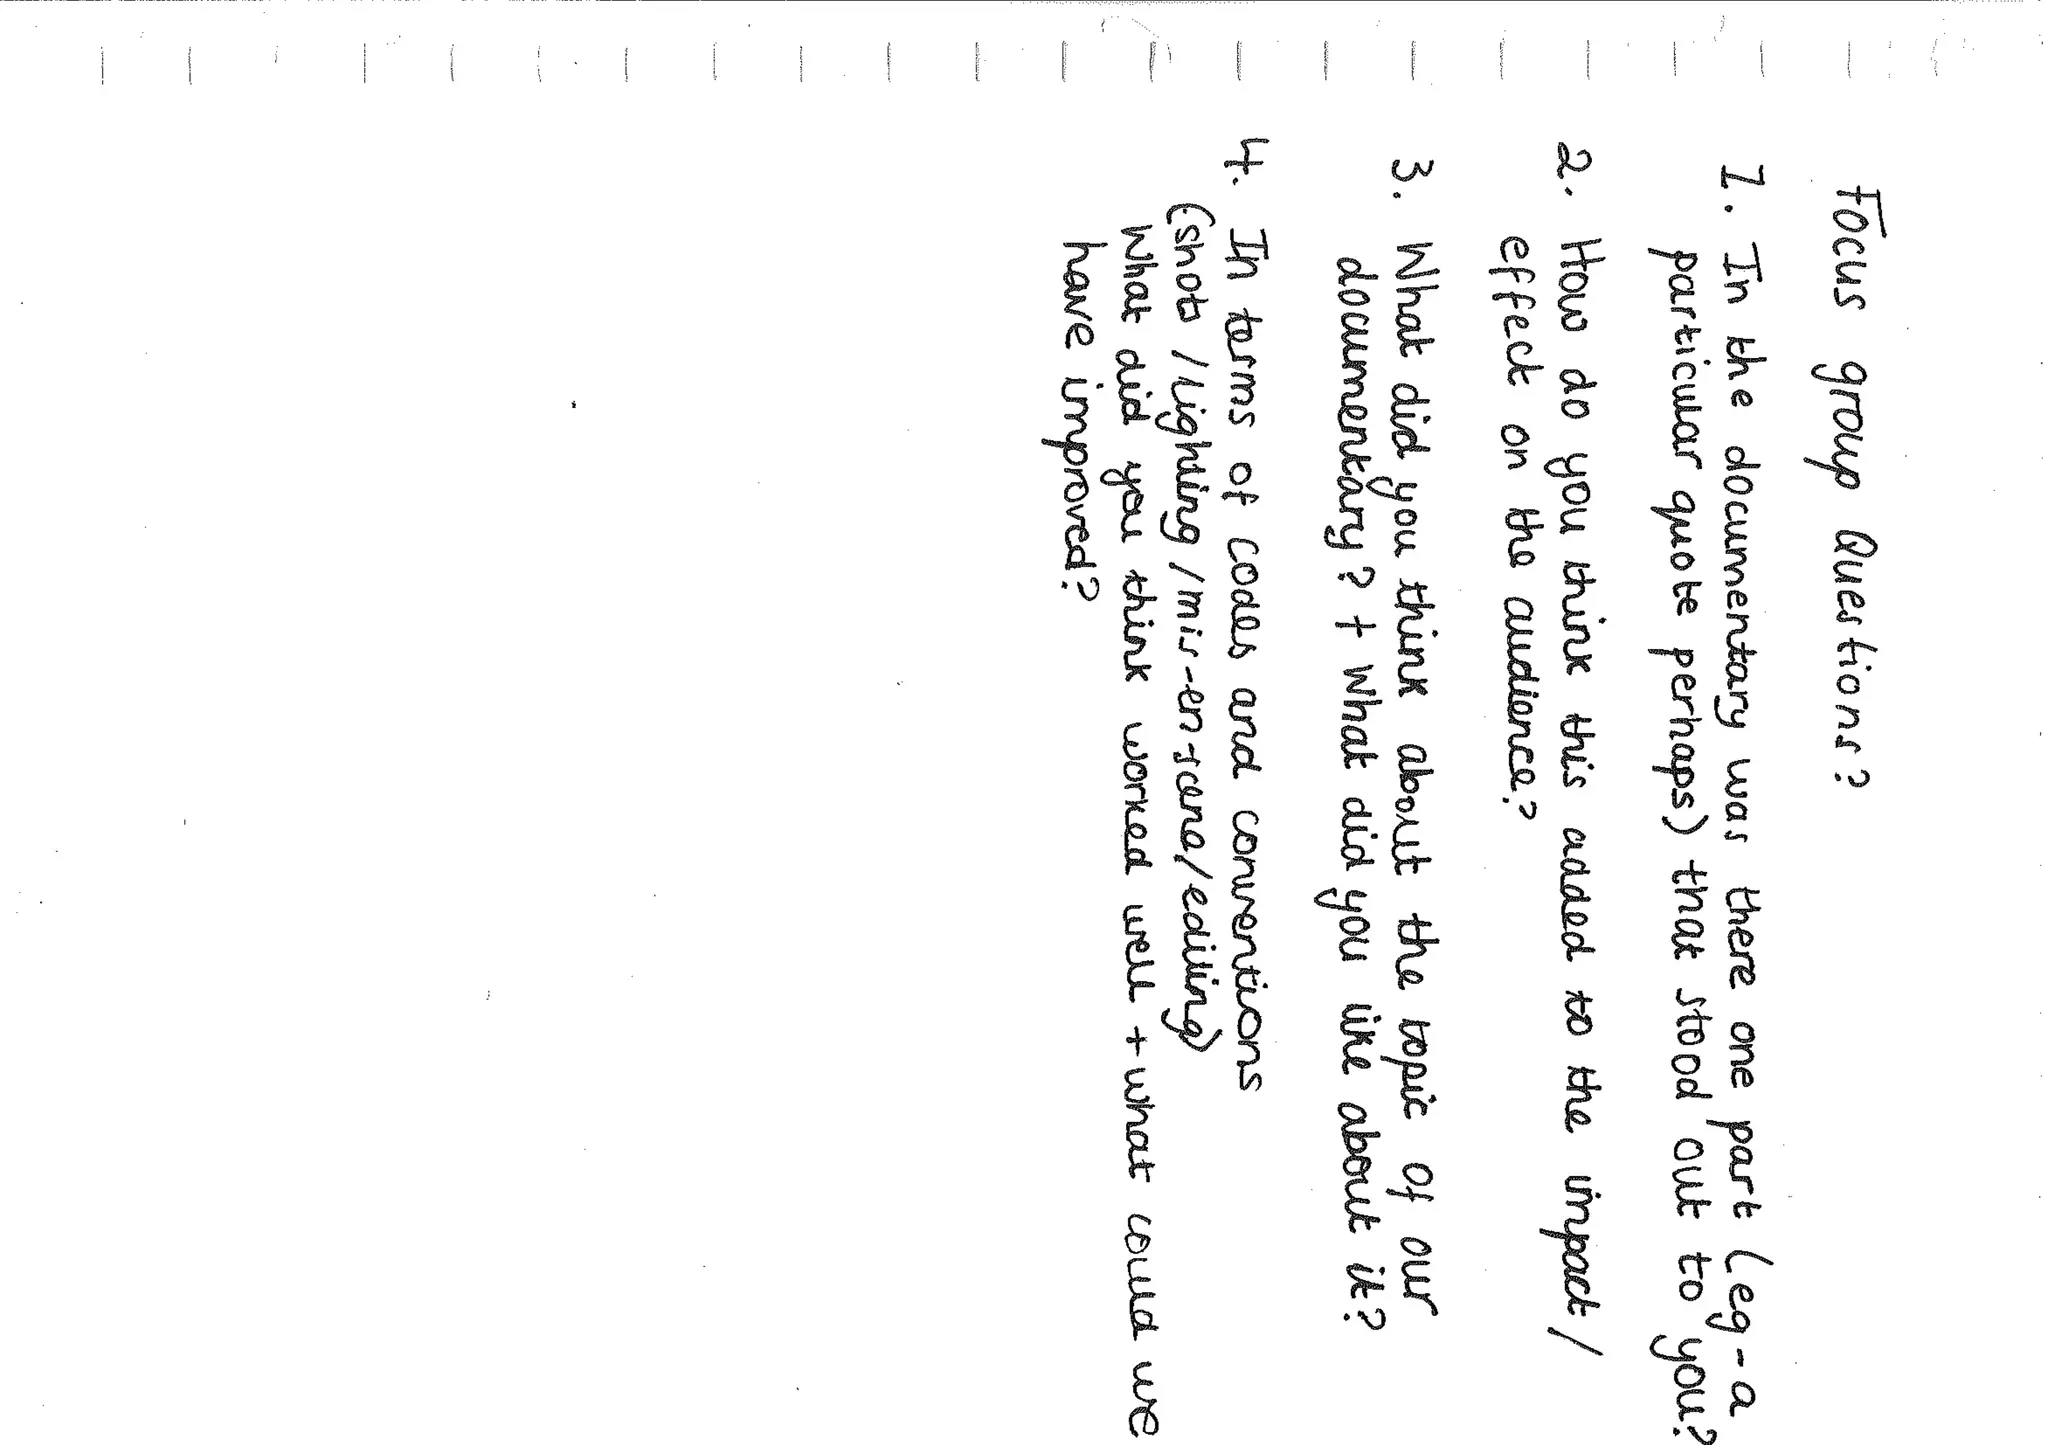 Focus group Questions?
1. In the documentary was there one part (eg-a
particular quote perhaps) that stood out to you?
2. How do you think this added to the impact/
effect on the audience?
3. What did you think about the topic of our
documentary? + What did you like about it?
4. In terms of codes and conventions
(shots /Lighting /mis-en-scene/editing)
What did you think worked well + what could we
have improved?